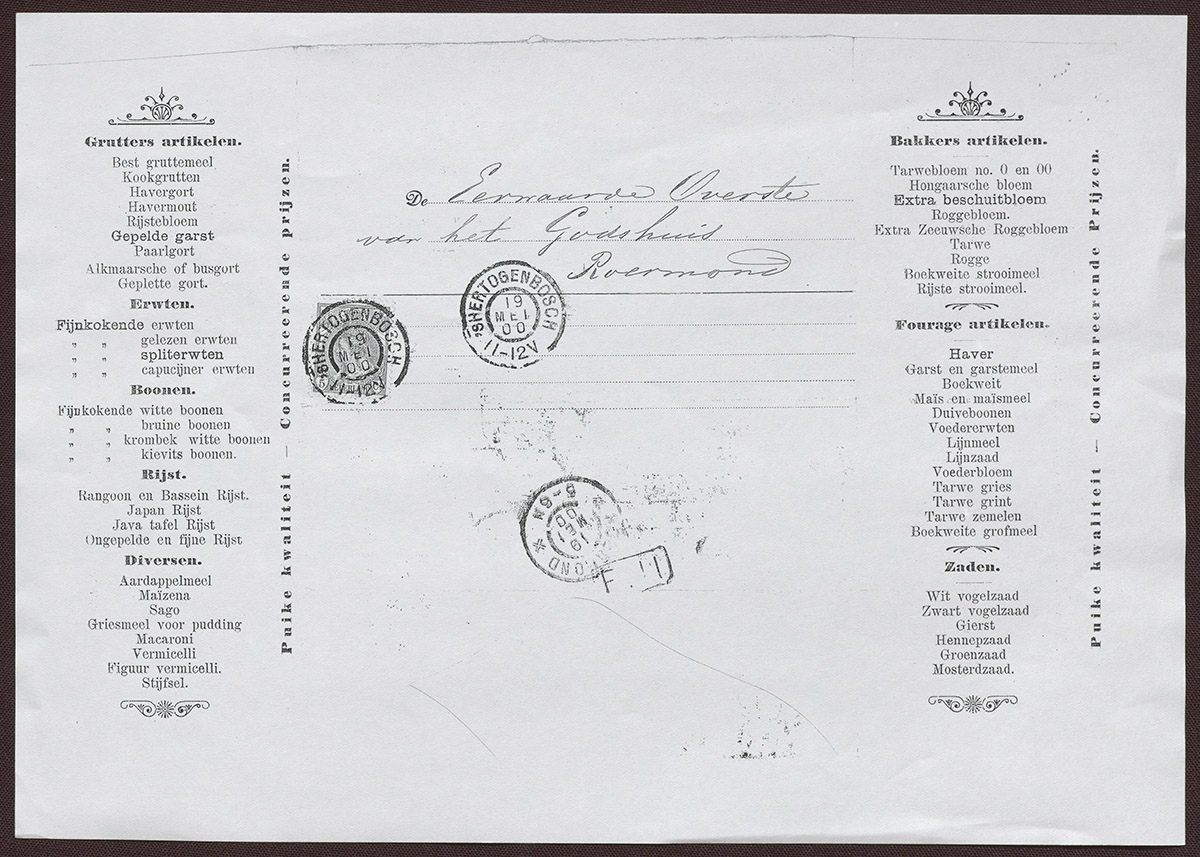 Grutters artikelen.
Best gruttemeel
Kookgrutten
Havergort
Havermout
Rijstebloem
Gepelde garst
Paarlgort
Alkmaarsche of busgort
Geplette gort.
Erwten.
Fijnkokende erwten
„ „ gelezen erwten
„ „ spliterwten
„ „ capucijner erwten
Boonen.
Fijnkokende witte boonen
„ „ bruine boonen
„ „ krombek witte boonen
„ „ kievits boonen.
Rijst.
Rangoon en Bassein Rijst.
Japan Rijst
Java tafel Rijst
Ongepelde en fijne Rijst
Diversen.
Aardappelmeel
Maïzena
Sago
Griesmeel voor pudding
Macaroni
Vermicelli
Figuur vermicelli.
Stijfsel.
Puike kwaliteit — Concurreerende prijzen.
De Eerwaarde Overste
van het Godshuis
Roermond
'SHERTOGENBOSCH
19
MEI
00
11-12V
'SHERTOGENBOSCH
19
MEI
00
11-12V
OND
19
MEI
00
5-6N
Bakkers artikelen.
Tarwebloem no. 0 en 00
Hongaarsche bloem
Extra beschuitbloem
Roggebloem.
Extra Zeeuwsche Roggebloem
Tarwe
Rogge
Boekweite strooimeel
Rijste strooimeel.
Fourage artikelen.
Haver
Garst en garstemeel
Boekweit
Maïs en maïsmeel
Duiveboonen
Voedererwten
Lijnmeel
Lijnzaad
Voederbloem
Tarwe gries
Tarwe grint
Tarwe zemelen
Boekweite grofmeel
Zaden.
Wit vogelzaad
Zwart vogelzaad
Gierst
Hennepzaad
Groenzaad
Mosterdzaad.
Puike kwaliteit — Concurreerende Prijzen.